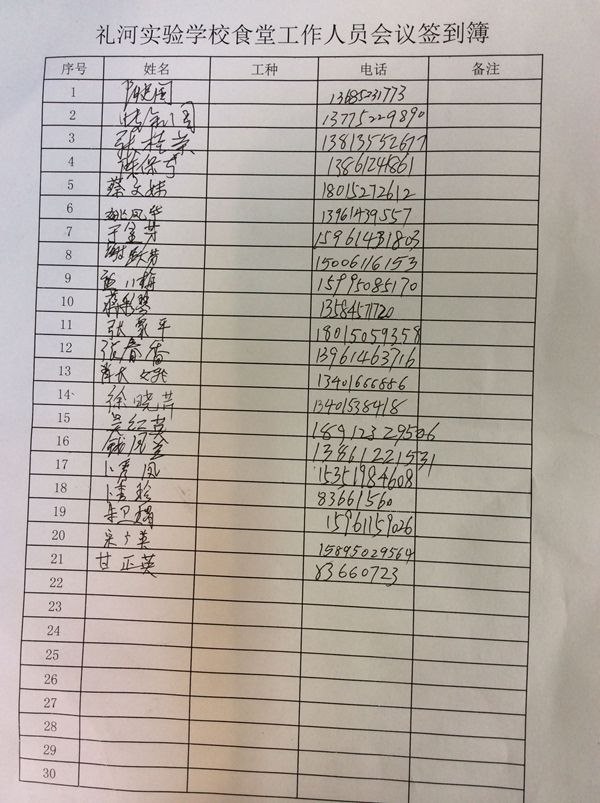 礼河实验学校食堂工作人员会议签到簿
序号 姓名 工种 电话 备注
1 13685231773
2 13775229890
3 张桂京 13813552677
4 陈保 13861241861
5 蔡文妹 18015272612
6 姚凤华 13961439557
7 于金芳 15961431803
8 谢 芳 15006116153
9 孟小梅 15995085170
10 蒋 琴 13584571720
11 张 平 18015059358
12 张春香 13961463716
13 13401666886
14 徐晓芹 13401538418
15 吴红 18912329506
16 钱凤金 13861221531
17 卜秀凤 15351984608
18 卜秀珍 83661560
19 朱卫 15961159026
20 宋 英 15895029564
21 甘正英 83660723
22
23
24
25
26
27
28
29
30